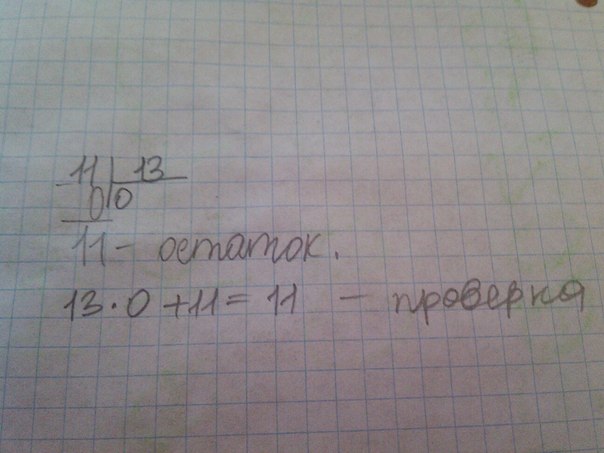 11 13
0 0
11 - остаток.
13 · 0 + 11 = 11 - проверка